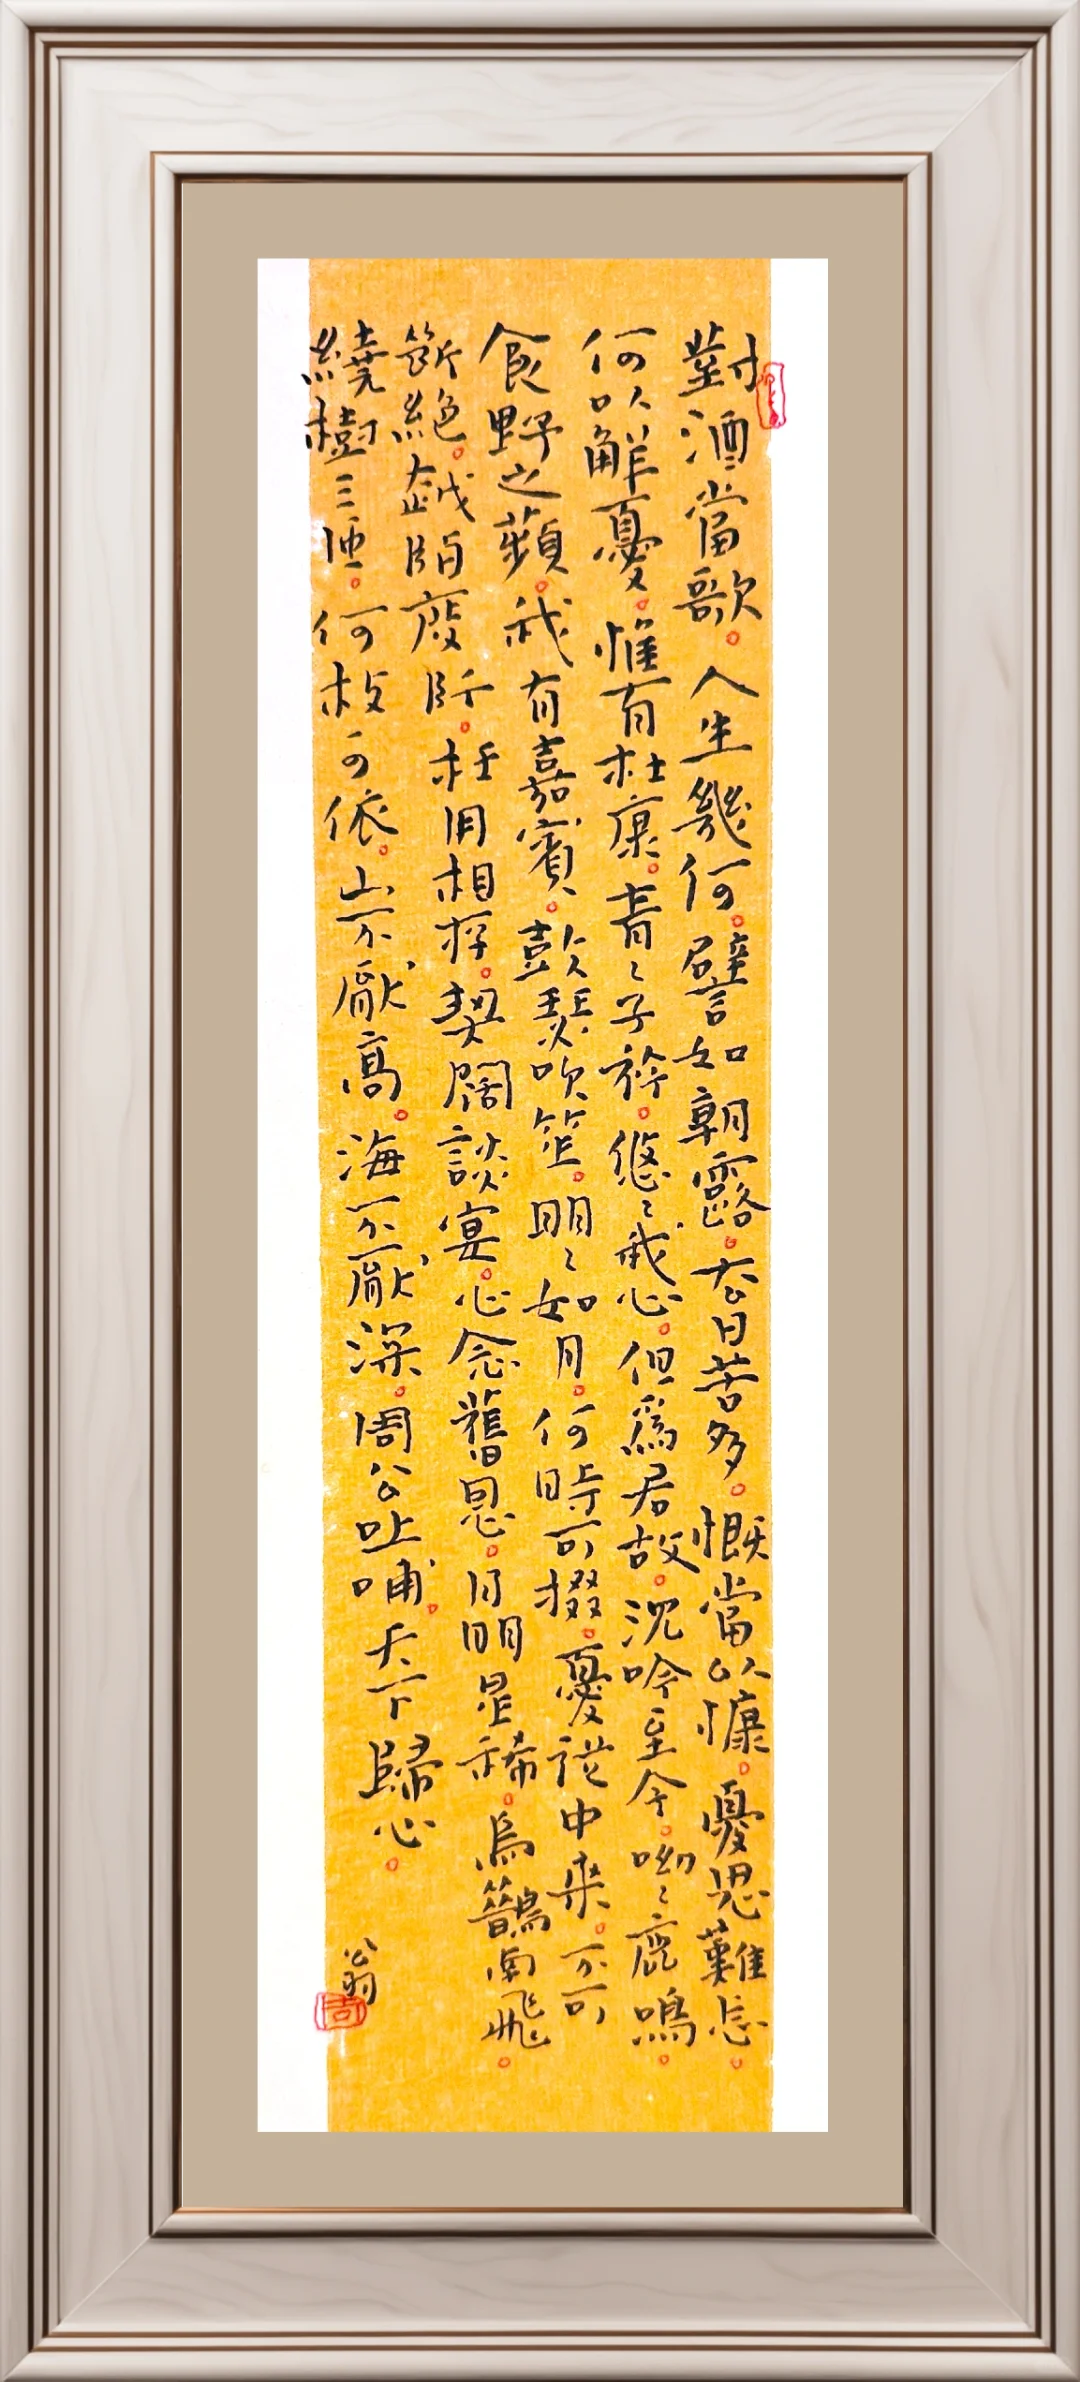 對酒當歌。人生幾何。譬如朝露。去日苦多。慨當以慷。憂思難忘。
何以解憂。惟有杜康。青〻子衿。悠〻我心。但爲君故。沈吟至今。呦〻鹿鳴。
食野之蘋。我有嘉賓。鼓瑟吹笙。明〻如月。何時可掇。憂從中來。不可
斷絕。越陌度阡。枉用相存。契闊談宴。心念舊恩。月明星稀。烏鵲南飛。
繞樹三匝。何枝可依。山不厭高。海不厭深。周公吐哺。天下歸心。
公羽